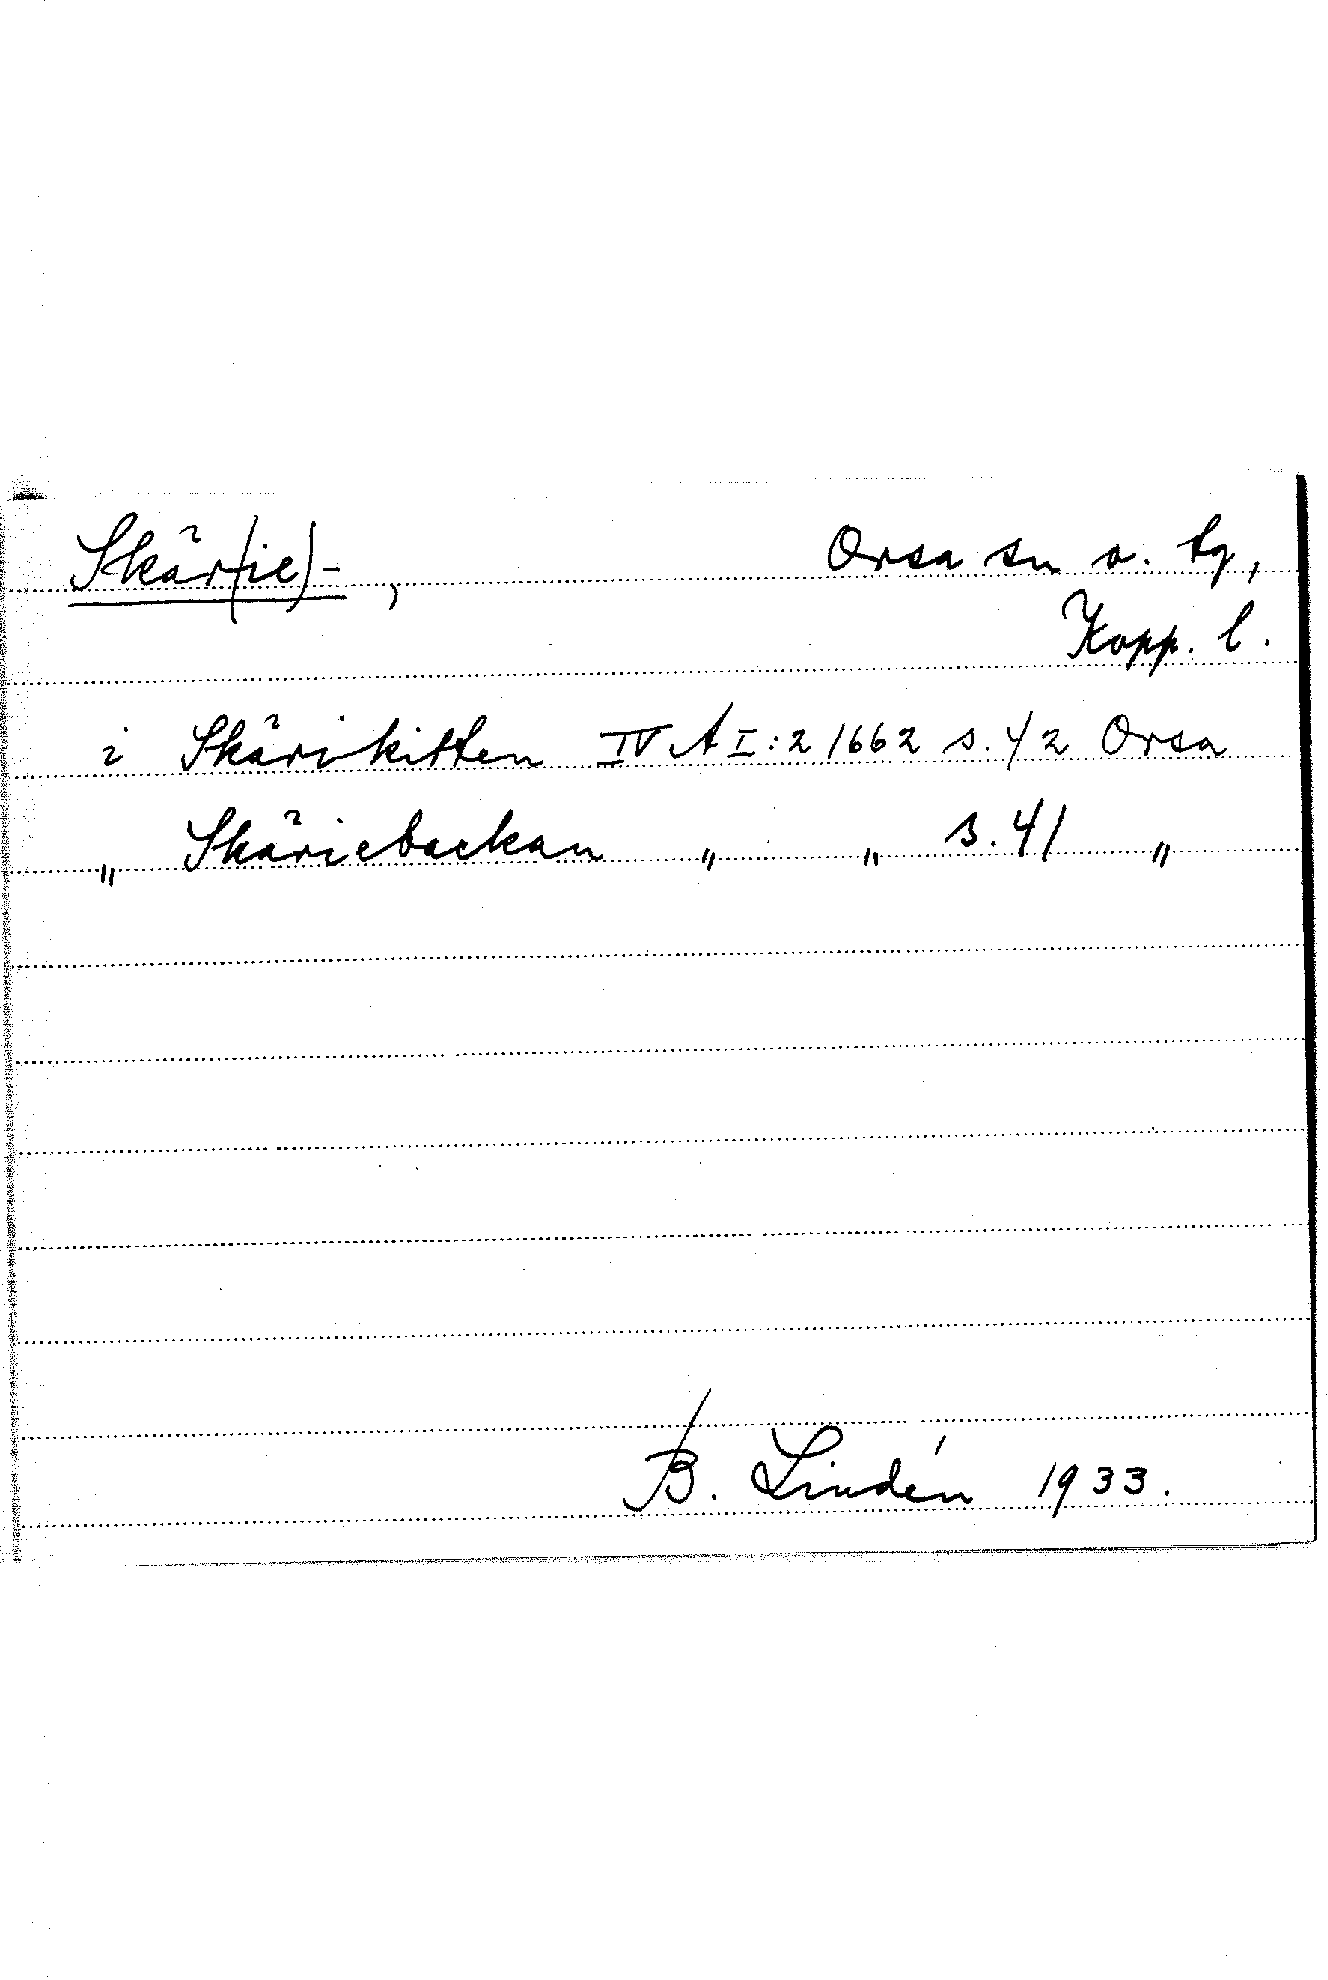 Skär(ie)-, Orsa sn o. tg,
Kopp. l.
i Skärikitten IV A I:2 1662 s. 42 Orsa
„ Skäriebackan „ „ s. 41 „
B. Lindén 1933.